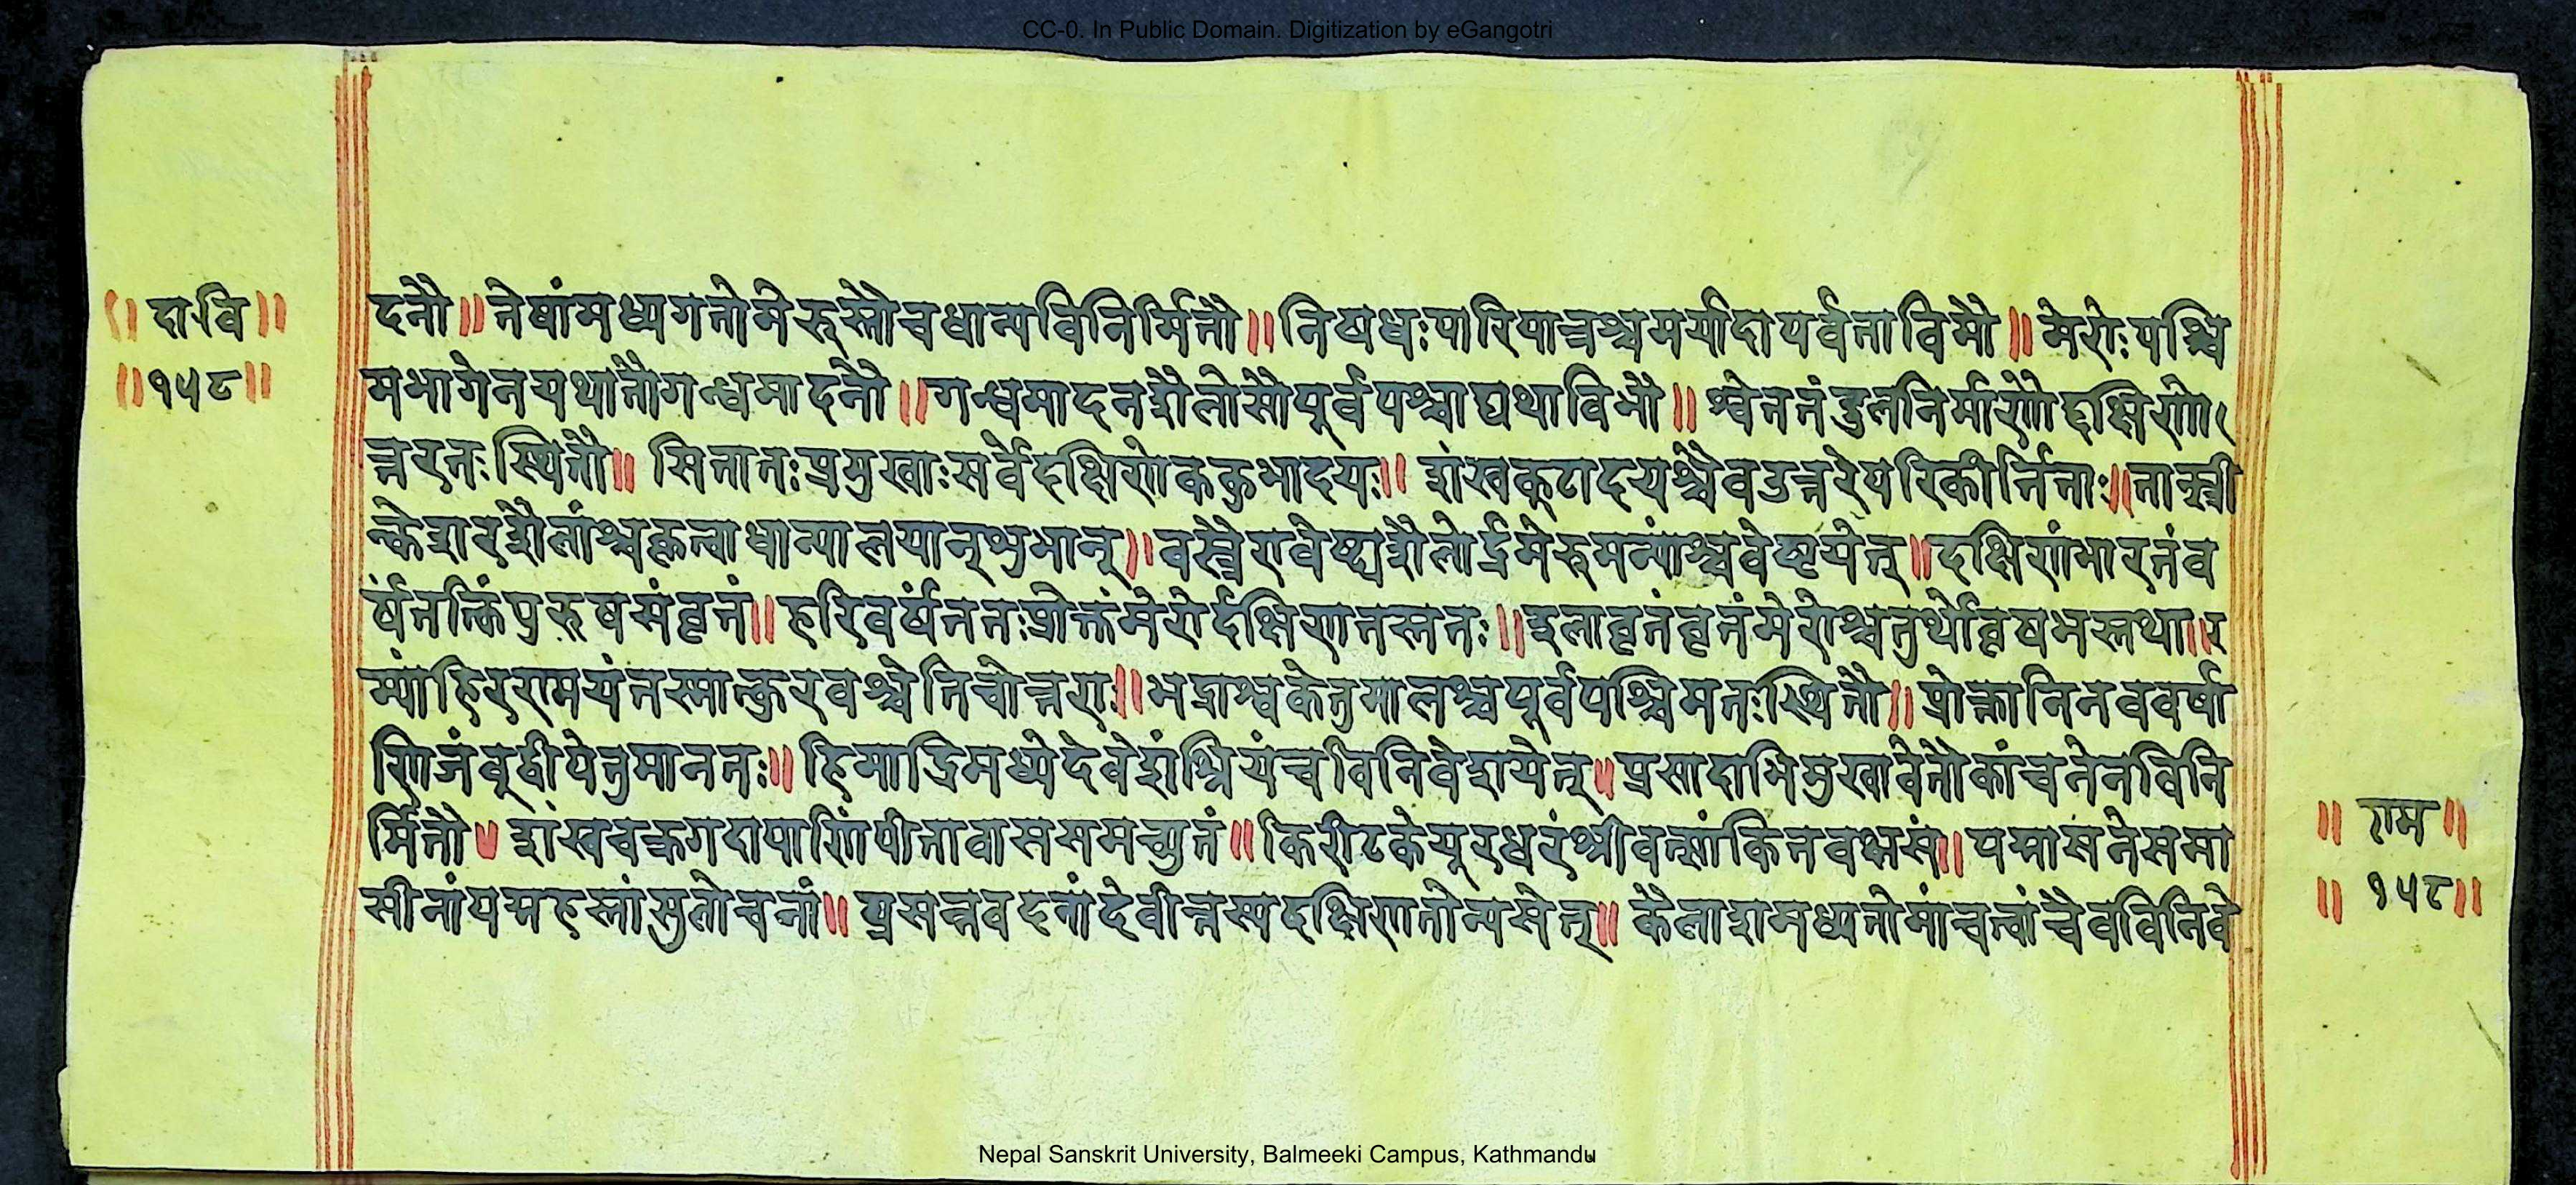 CC-0. In Public Domain. Digitization by eGangotri
॥ दा॰वि॥
॥१५८॥
दनौ॥ तेषांमध्यगतोमेरुस्तौचधान्यविनिर्मितौ॥ निषधःपारियात्रश्चमर्यादापर्वताविमौ॥ मेरोःपश्चि
मभागेनयथातौगन्धमादनौ॥ गन्धमादनशैलोसौपूर्वपश्चाद्यथाविभौ॥ श्वेततंडुलनिर्माणौदक्षिणो
त्तरतःस्थितौ॥ सितातःप्रमुखाःसर्वेदक्षिणेककुभादयः॥ शंखकूटादयश्चैवउत्तरेपरिकीर्त्तिताः॥ तान्स्त्री
न्केशरशैलांश्चकृत्वाधान्यालयान्शुभान्॥ वस्त्रेणवेष्ट्यशैलोर्द्रमेरुमन्यांश्चवेष्टयेत्॥ दक्षिणंभारतंव
र्षंतत्किंपुरुषसंवृतं॥ हरिवर्षंततःप्रोक्तंमेरोर्दक्षिणतस्ततः॥ इलावृतंवृतंमेरोश्चतुर्थोवृषभस्तथा॥ र
म्यंहिरणमयंतस्मात्कुरवश्चेतिचोत्तराः॥ भद्राश्वकेतुमालश्चपूर्वपश्चिमतःस्थितौ॥ प्रोक्तानिनववर्षा
णिजंबूद्वीपेतुमानतः॥ हिमाद्रिमध्येदेवेशंश्रियंचविनिवेशयेत्॥ प्रसादाभिमुखावेतौकांचनेनविनि
र्मितौ॥ शंखचक्रगदापाणिंपीतावाससमच्युतं॥ किरीटकेयूरधरंश्रीवत्सांकितवक्षसं॥ पद्मासनेसमा
सीनांपद्महस्तांसुलोचनां॥ प्रसन्नवदनांदेवीन्तस्यदक्षिणतोन्यसेत्॥ कैलाशमध्यतोमांचत्वांचैवविनिवे
॥ राम॥
॥ १५८॥
Nepal Sanskrit University, Balmeeki Campus, Kathmandu